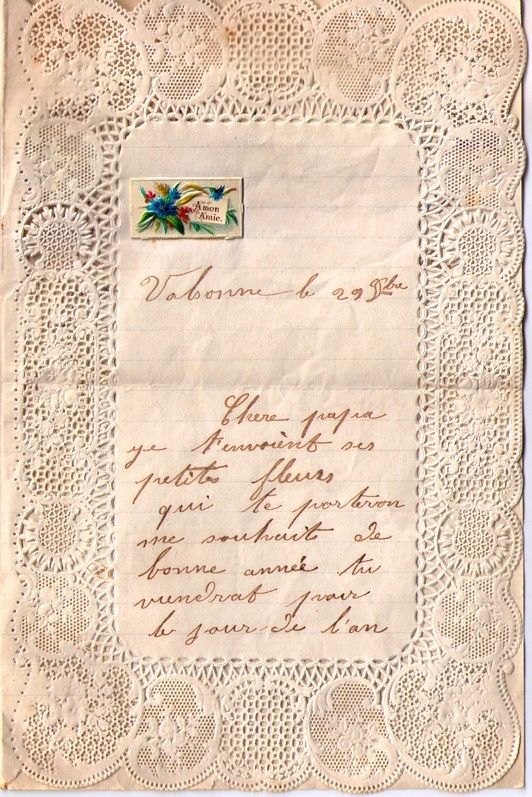 Amon
Amie.
Valsonne le 29 9bre
Chere papa
ge t'envoient ses
petites fleurs
qui te porteron
me souhaits de
bonne année tu
viendrat pour
le jour de l'an